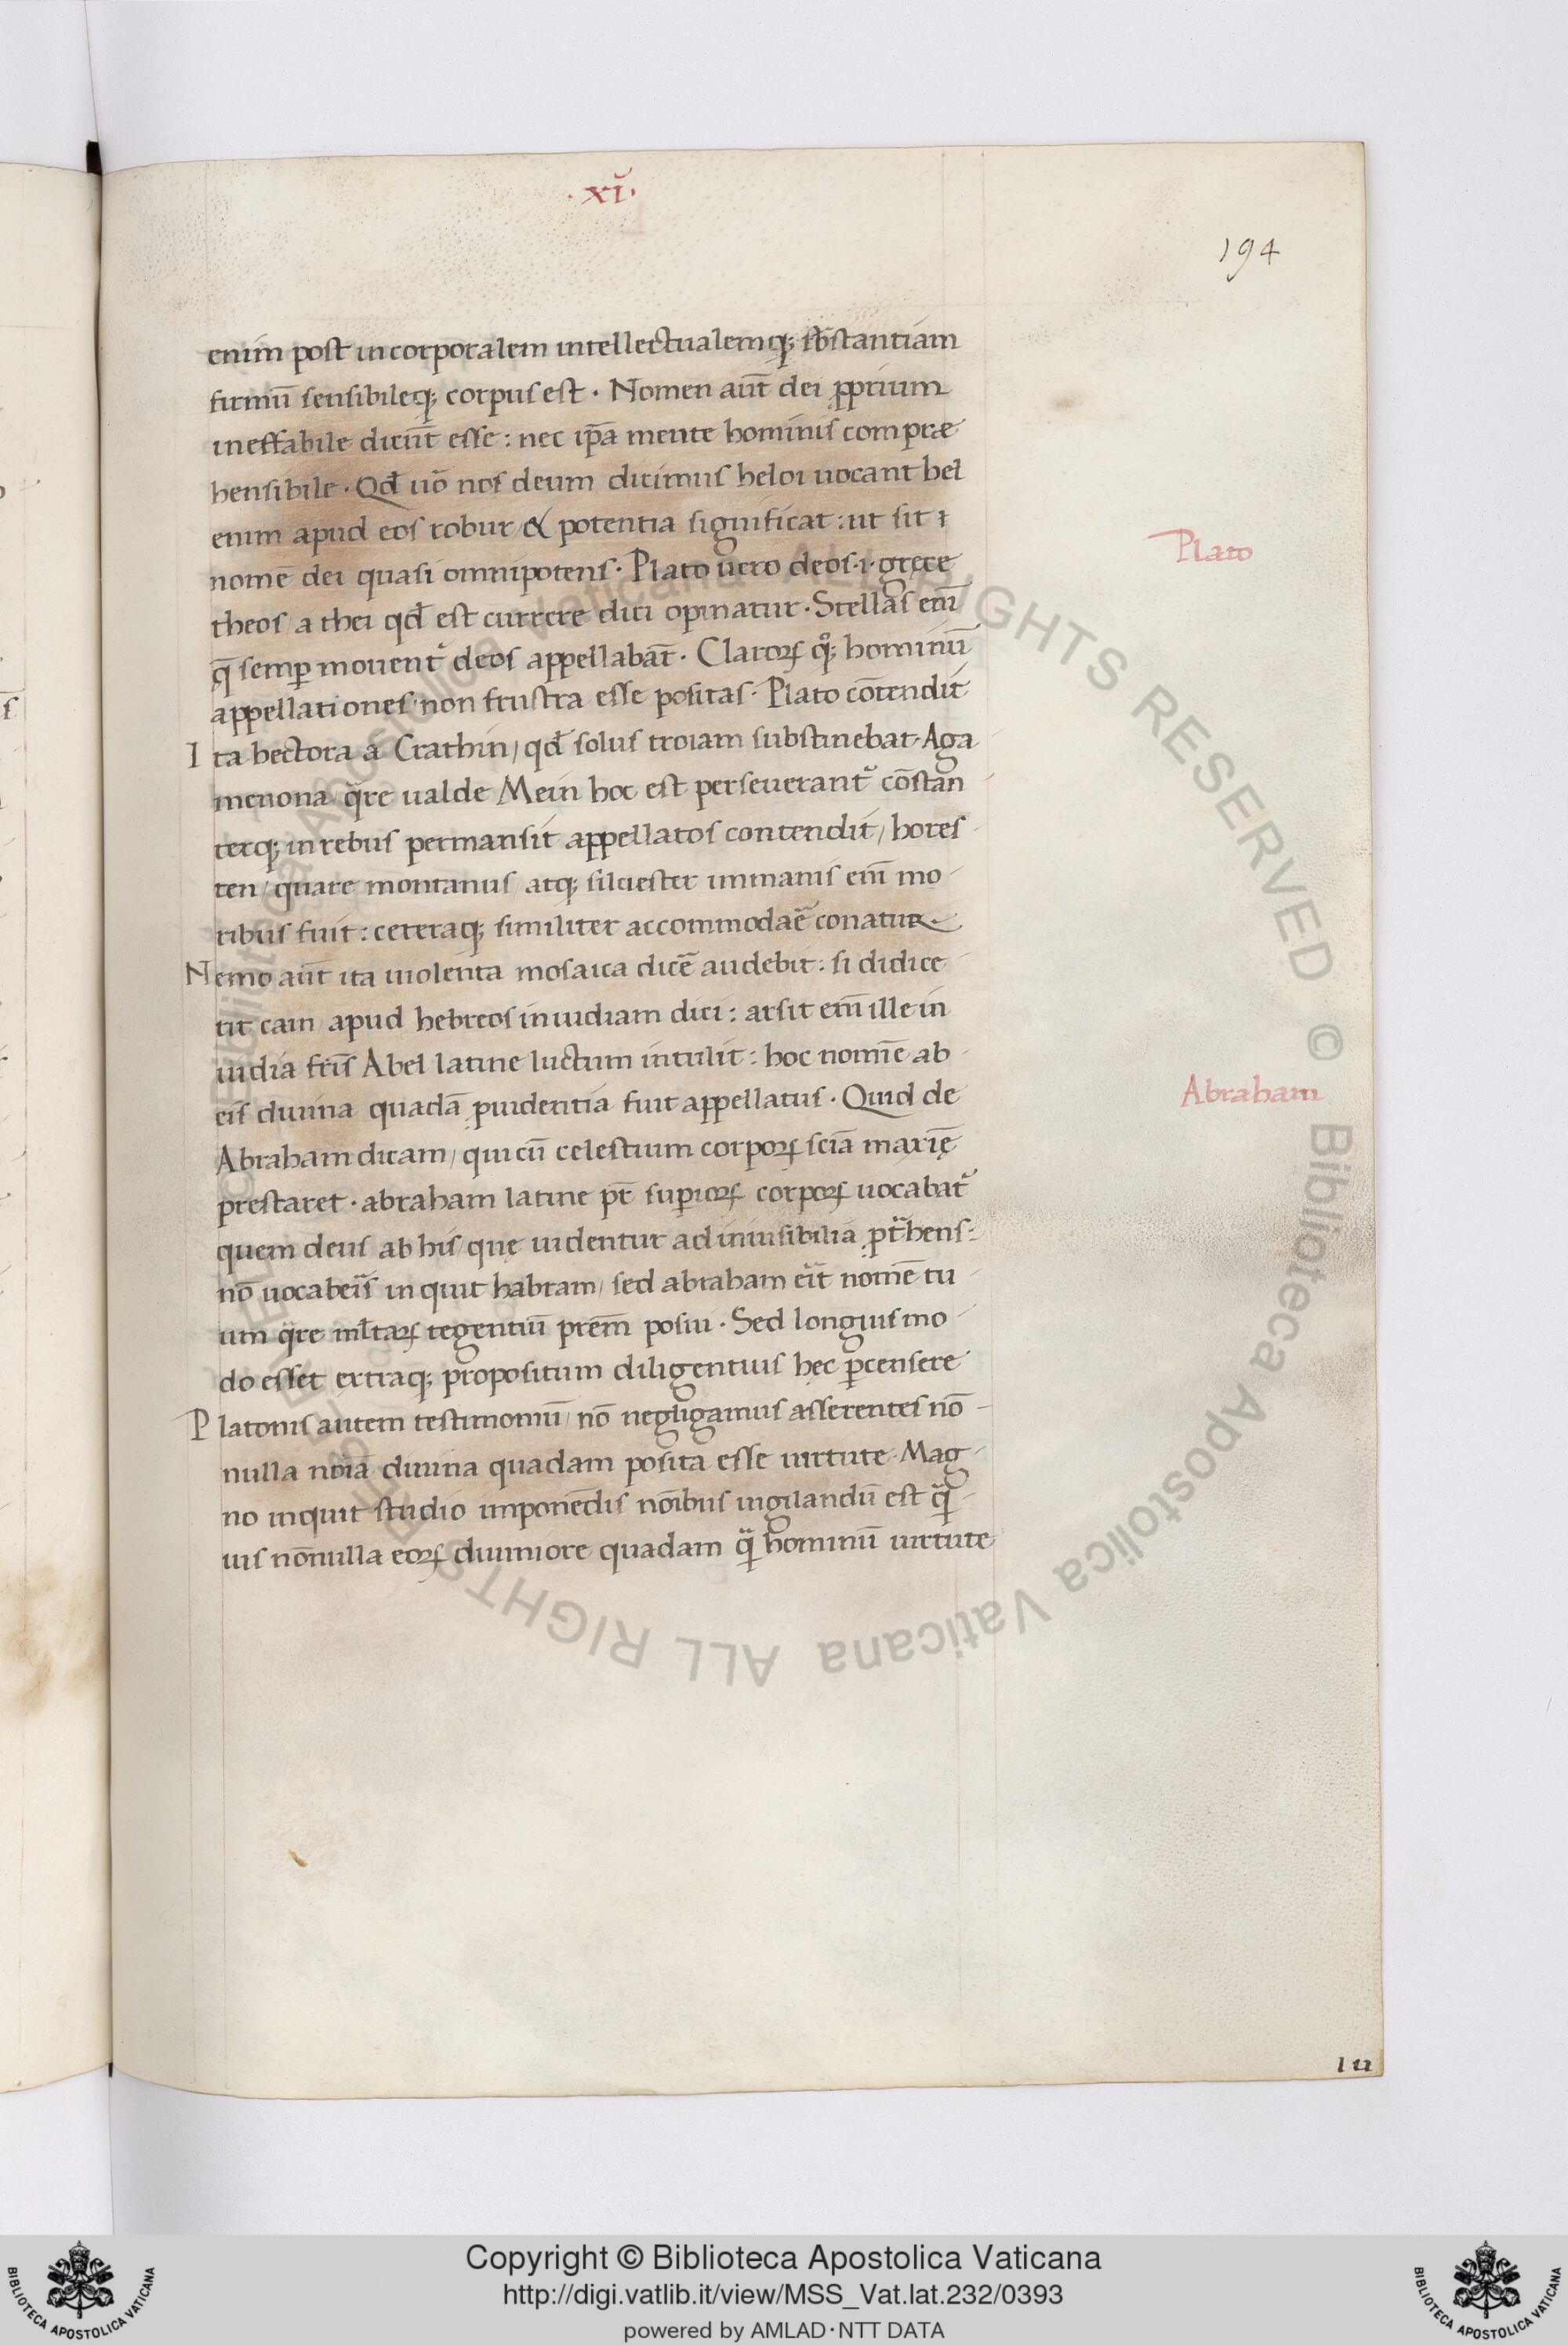 ·xĭ·
194
enim post incorporalem intellectualemq; sƀstantiam
firmū sensibileq; corpus est · Nomen aut̄ dei ꝓprium
ineffabile dicūt esse : nec ip̄a mente hominis compræ
hensibile · Qđ uō nos deum dicimus heloi uocant hel
enim apud eos robur / & potentia significat : ut sit ⁊
nomē dei quasi omnipotens · Plato uero deos · i · gręce
theos / a thei qđ est currere dici opinatur · Stellas em̄
q̄ semꝑ mouent᷑ deos appellabāt · Clarorꝝ qͦ; hominū
appellationes / non frustra esse positas · Plato cōtendit
Ita hectora a Crathin / qđ solus troiam substinebat · Aga
menona / q̈re ualde Mein hoc est perseuerant᷑ cōstan
terq; in rebus permansit appellatos contendit / hores
ten / quare montanus / atq; siluester immanis em̄ mo
ribus fuit : ceteraq; similiter accommodaē conatur
Nemo aut̄ ita uiolenta mosaica dicē audebit : si didice
rit cain / apud hebreos inuidiam dici : arsit em̄ ille in
uidia fr̄is Abel latine luctum intulit : hoc nomē ab
eis diuina quadā ꝓuidentia fuit appellatus · Quid de
Abraham dicam / qui cū celestium corporꝝ sciā maxīę
prestaret · abraham latine pr̄ suꝑiorꝝ corporꝝ uocabat᷑
quem deus ab his / quę uidentur ad inuisibilia ꝓt̄hens :
nō uocaber̄is inquit habram / sed abraham er̄it nomē tu
um q̈re ml̄tarꝝ tegentiū prēm posui · Sed longius mo
do esset extraq; propositum diligentius hęc ꝑcensere
Platonis autem testimoniū / nō negligamus asserentes nō
nulla nōia diuina quadam posita esse uirtute · Mag
no inquit studio imponēdis nōibus uigilandū est q̈
uis nōnulla eorꝝ diuiniore quadam q̈ hominū uirtute
Plato
Abraham
Copyright © Biblioteca Apostolica Vaticana
http://digi.vatlib.it/view/MSS_Vat.lat.232/0393
powered by AMLAD·NTT DATA
BIBLIOTECA APOSTOLICA VATICANA
BIBLIOTECA APOSTOLICA VATICANA
ALL RIGHTS RESERVED © Biblioteca Apostolica Vaticana